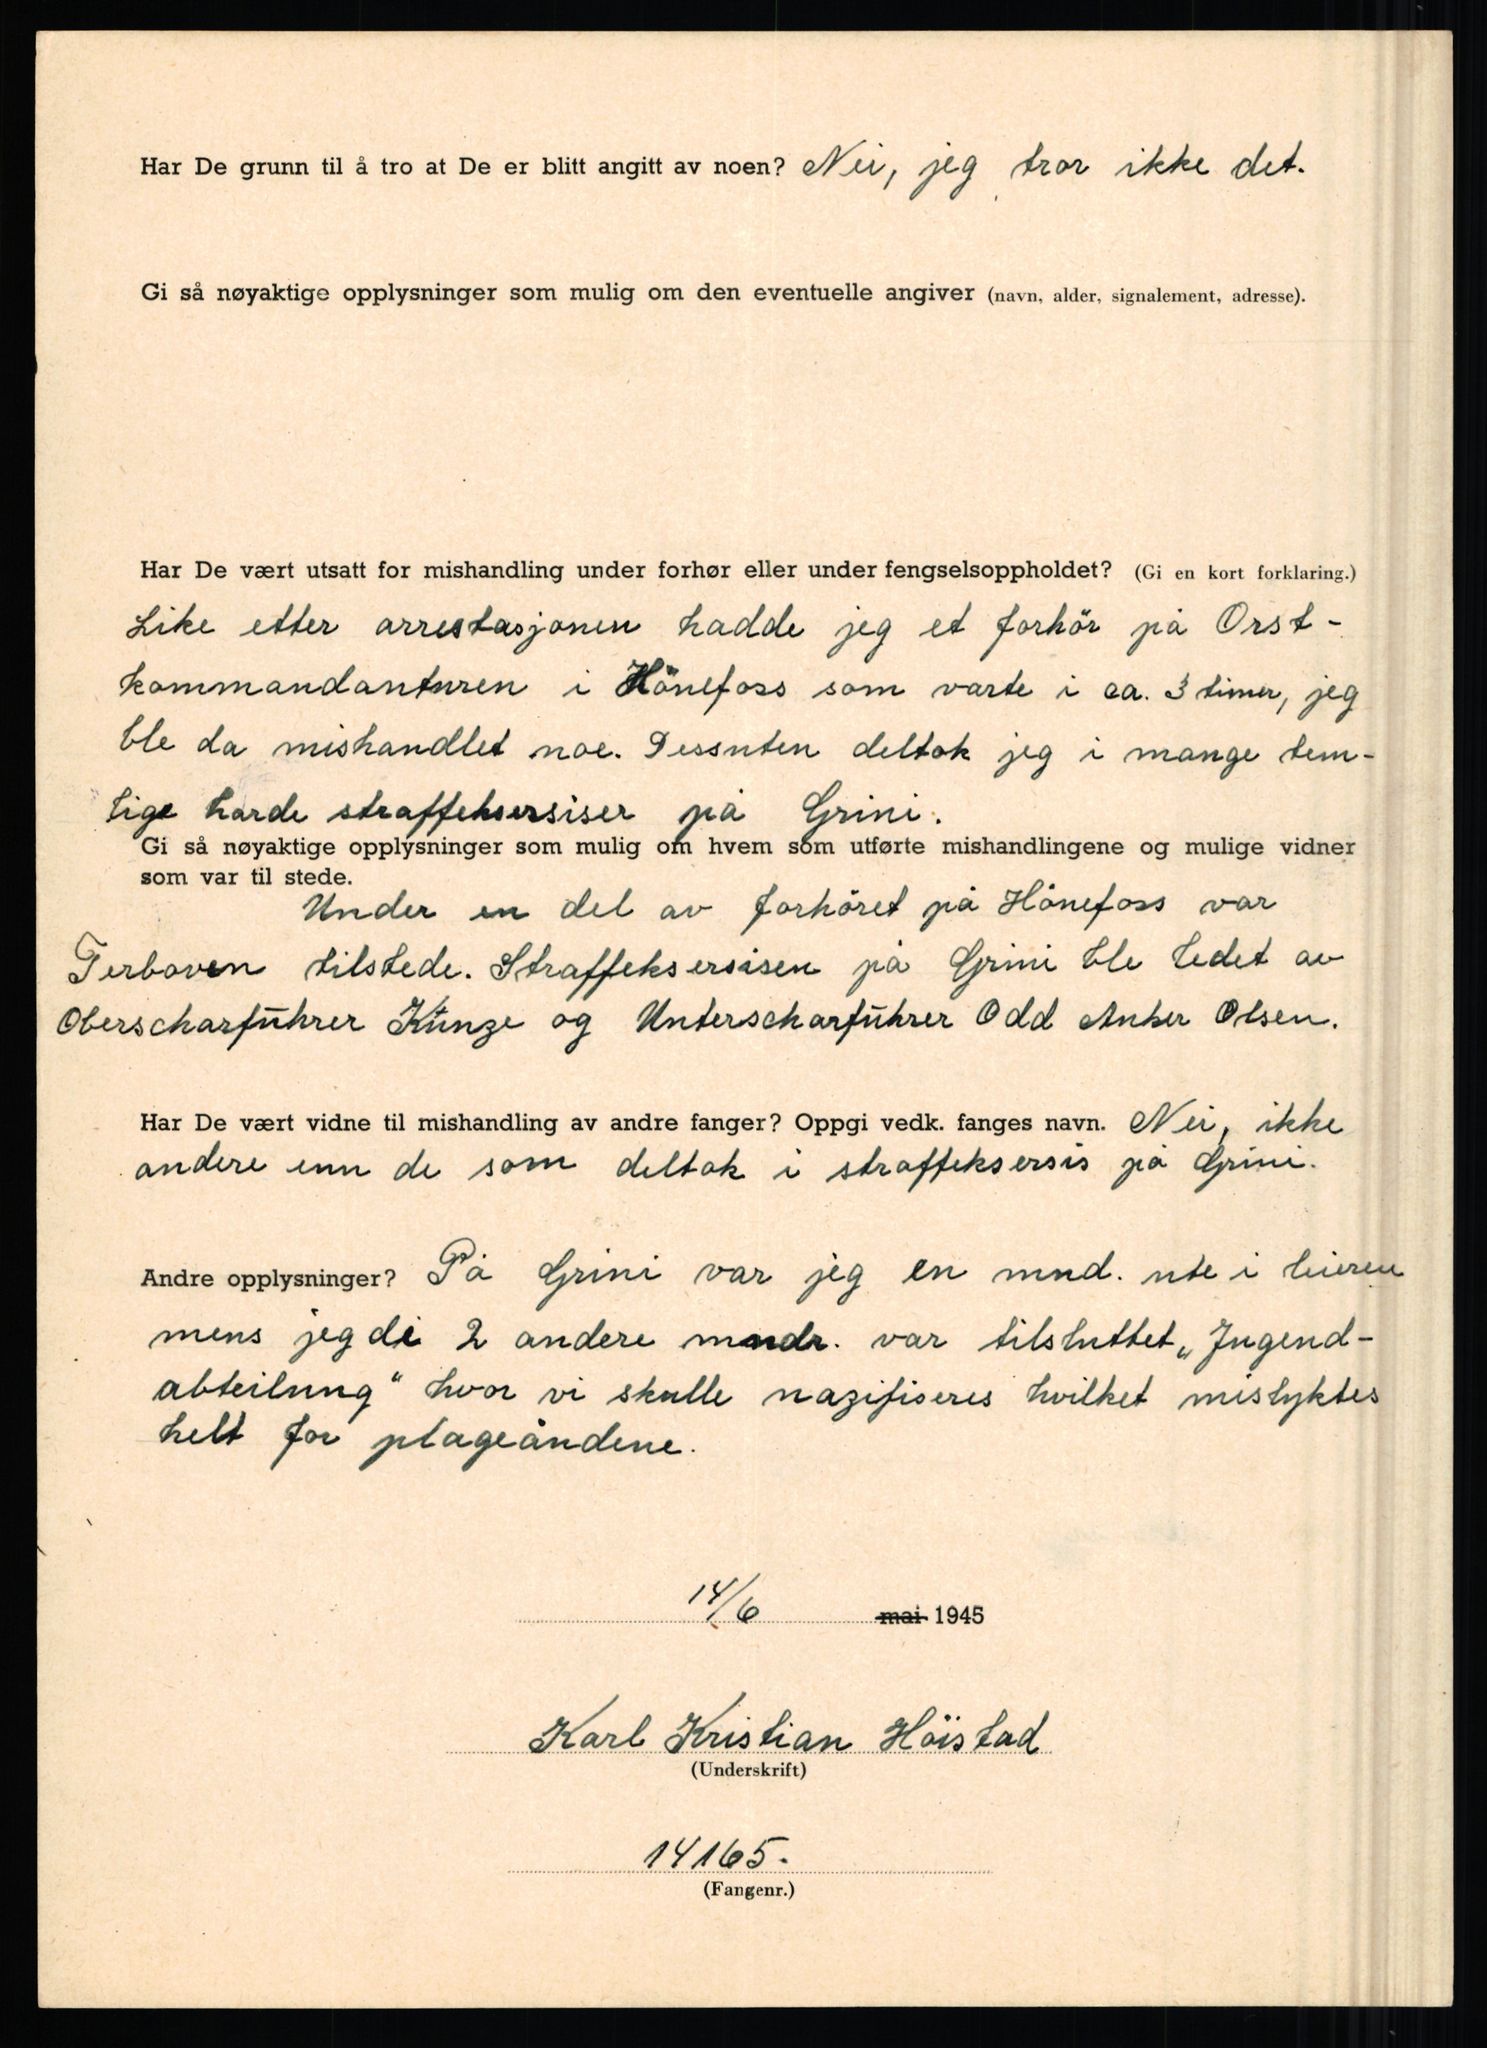 Har De grunn til å tro at De er blitt angitt av noen? Nei, jeg tror ikke det.
Gi så nøyaktige opplysninger som mulig om den eventuelle angiver (navn, alder, signalement, adresse).
Har De vært utsatt for mishandling under forhør eller under fengselsoppholdet? (Gi en kort forklaring.)
Like etter arrestasjonen hadde jeg et forhör på Orst-
kommandanturen i Hönefoss som varte i ca. 3 timer, jeg
ble da mishandlet noe. Dessuten deltok jeg i mange tem-
lige harde straffeksersiser på Grini.
Gi så nøyaktige opplysninger som mulig om hvem som utførte mishandlingene og mulige vidner
som var til stede.
Under en del av forhöret på Hönefoss var
Terboven tilstede. Straffeksersisen på Grini ble ledet av
Oberscharführer Künze og Unterscharführer Odd Anker Olsen.
Har De vært vidne til mishandling av andre fanger? Oppgi vedk. fanges navn. Nei, ikke
andere enn de som deltok i straffeksersis på Grini.
Andre opplysninger? På Grini var jeg en mnd. ute i leieren
mens jeg de 2 andere mndr. var tilsluttet „Jugend-
abteilung" hvor vi skulle nazifiseres hvilket mislyktes
helt for plageåndene.
14/6 mai 1945
Karl Kristian Höistad
(Underskrift)
14165.
(Fangenr.)